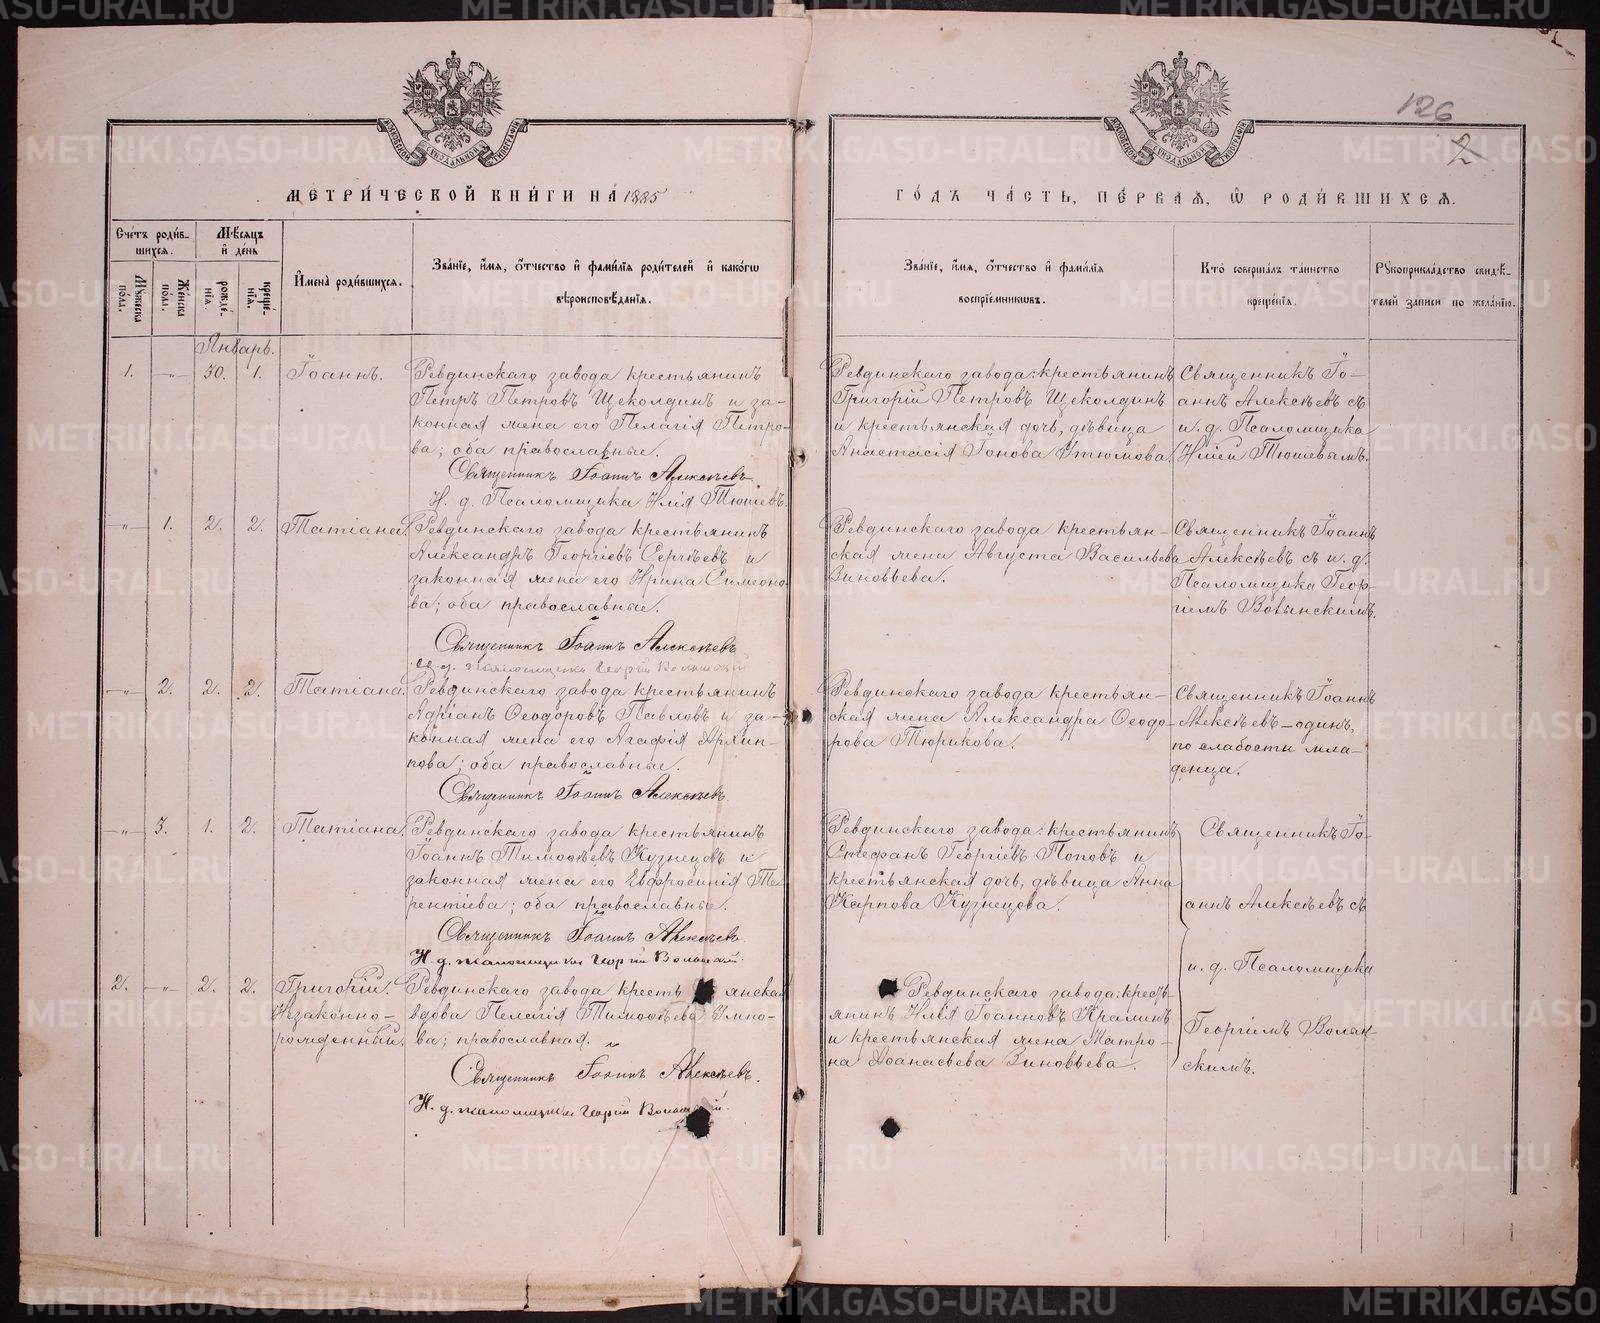 126
2
МОСКОВСКОЙ СѴНОДАЛЬНОЙ ТИПОГРАФІИ
МОСКОВСКОЙ СѴНОДАЛЬНОЙ ТИПОГРАФІИ
МЕТРИ́ЧЕСКОЙ КНИ́ГИ НА 1885
ГО́ДЪ ЧА́СТЬ, ПЕ́РВАѦ, Ѽ РОДИ́ВШИХСѦ.
Сче́тъ роди́в-
шихсѧ.
Мꙋ́жеска по́ла.
Же́нска по́ла.
Мѣ́сѧцъ
и҆ де́нь
рожде́нїѧ.
креще́нїѧ.
И҆мена̀ роди́вшихсѧ.
Зва́нїе, и҆́мѧ, ѻ҆́тчество и҆ фами́лїѧ роди́телей и҆ како́гѡ
вѣроисповѣ́данїѧ.
Зва́нїе, и҆́мѧ, ѻ҆́тчество и҆ фами́лїѧ
воспрїе́мникѡвъ.
Кто̀ соверша́лъ та́инство
креще́нїѧ.
Рꙋкоприкла́дство свидѣ́-
телей за́писи по жела́нїю.
Январь.
1. -„- 30. 1. Іоаннъ.
Ревдинскаго завода крестьянинъ
Петръ Петровъ Щеколдинъ и за-
конная жена его Пелагія Петро-
ва; оба православные.
Священникъ Іоаннъ Алексѣевъ.
И. д. Псаломщика Илія Тюшевъ.
Ревдинскаго завода: крестьянинъ
Григорій Петровъ Щеколдинъ
и крестьянская дочь, дѣвица
Анастасія Іонова Утюмова.
Священникъ Іо-
аннъ Алексѣевъ съ
и. д. Псаломщика
Иліей Тюшевымъ.
-„- 1. 2. 2. Татіана.
Ревдинскаго завода крестьянинъ
Александръ Георгіевъ Сергѣевъ и
законная жена его Ирина Симеоно-
ва; оба православные.
Священникъ Іоаннъ Алексѣевъ
И. д. псаломщика Георгій
Ревдинскаго завода крестьян-
ская жена Августа Васильева
Зиновьева.
Священникъ Іоаннъ
Алексѣевъ съ и. д.
Псаломщика Геор-
гіемъ
-„- 2. 2. 2. Татіана.
Ревдинскаго завода крестьянинъ
Адріанъ Ѳеодоровъ Павловъ и за-
конная жена его Агафія Архип-
пова; оба православные.
Священникъ Іоаннъ Алексѣевъ.
Ревдинскаго завода крестьян-
ская жена Александра Ѳеодо-
рова Тюрикова.
Священникъ Іоаннъ
Алексѣевъ - одинъ,
по слабости мла-
денца.
-„- 3. 1. 2. Татіана.
Ревдинскаго завода крестьянинъ
Іоаннъ Тимоѳеевъ Кузнецовъ и
законная жена его Евфросинія Те-
рентіева; оба православные.
Священникъ Іоаннъ Алексѣевъ
И. д. псаломщика Георгій
Ревдинскаго завода: крестьянинъ
Стефанъ Георгіевъ Поповъ и
крестьянская дочь, дѣвица Анна
Карпова Кузнецова.
Священникъ Іо-
аннъ Алексѣевъ съ
и. д. Псаломщика
Георгіемъ Волын-
скимъ.
2. -„- 2. 2. Григорій.
Незаконно-
рожденный.
Ревдинскаго завода крестьянская
вдова Пелагія Тимоѳеева
ва; православная.
Священникъ Іоаннъ Алексѣевъ.
И. д. псаломщика Георгій
Ревдинскаго завода: кресть-
янинъ Илія Іоанновъ Кралинъ
и крестьянская жена Матро-
на Аѳанасьева Зиновьева.
METRIKI.GASO-URAL.RU